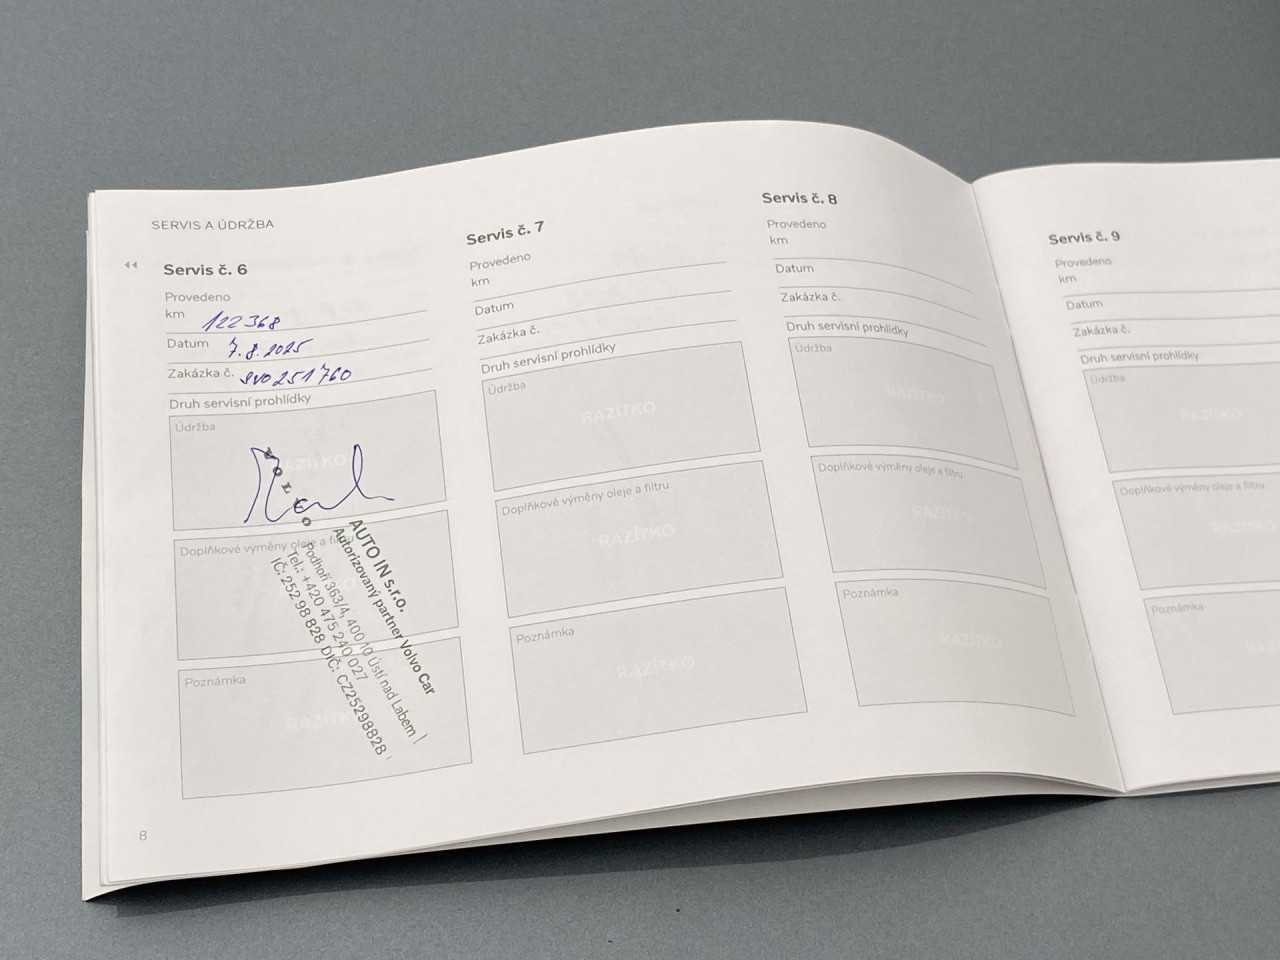 SERVIS A ÚDRŽBA
Servis č. 6
Provedeno
km 122 368
Datum 7.8.2025
Zakázka č. SVO251760
Druh servisní prohlídky
Údržba
RAZÍTKO
VOLVO
Doplňkové výměny oleje a filtru
AUTO IN s.r.o.
Autorizovaný partner Volvo Car
Podhoří 363/4, 400 10 Ústí nad Labem
Tel.: +420 475 240 027
IČ: 252 98 828 DIČ: CZ25298828
Poznámka
RAZÍTKO
Servis č. 7
Provedeno
km
Datum
Zakázka č.
Druh servisní prohlídky
Údržba
RAZÍTKO
Doplňkové výměny oleje a filtru
RAZÍTKO
Poznámka
RAZÍTKO
Servis č. 8
Provedeno
km
Datum
Zakázka č.
Druh servisní prohlídky
Údržba
RAZÍTKO
Doplňkové výměny oleje a filtru
RAZÍTKO
Poznámka
RAZÍTKO
Servis č. 9
Provedeno
km
Datum
Zakázka č.
Druh servisní prohlídky
Údržba
RAZÍTKO
Doplňkové výměny oleje a filtru
RAZÍTKO
Poznámka
8